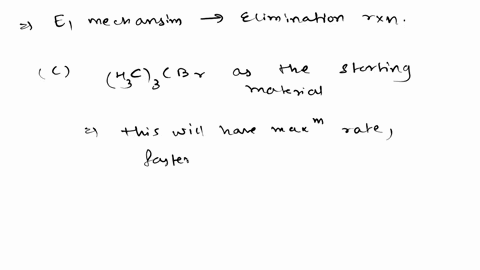 ⇒ E₁ mechansim → Elimination rxn.
(C) (H₃C)₃CBr as the starting
material
⇒ this will have maxᵐ rate,
faster